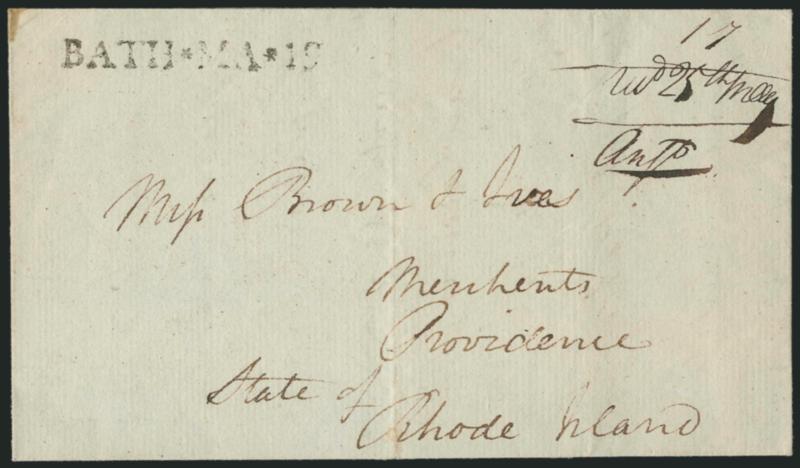 BATH★MA★19
17
Recd 25th May
Ansd
Mess Brown & Ives
Merchents
Providence
State of
Rhode Island